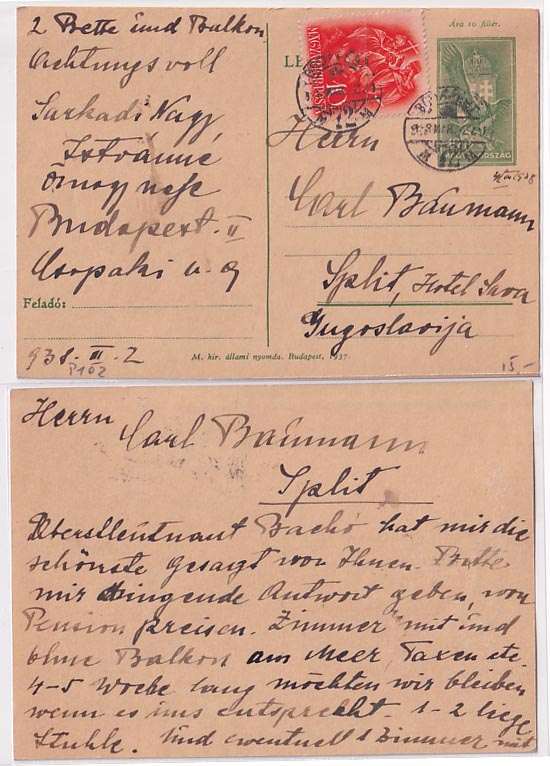 2 Bette und Balkon
Achtungsvoll
Sarkadi Nagy
Istvánné
őrnagy neje
Budapest. II
Csopaki u. 9
Feladó:
938. III. 2
P102
M. kir. állami nyomda. Budapest, 1937.
Ára 10 fillér.
MAGYARORSZÁG
10
72
Herrn
Carl Baumann
Split, Hotel Sava
Jugoslavija
15.-
Herrn
Carl Baumann
Split
Oberstleutnant Bachó hat mir die
schönste gesagt von Ihnen. Bitte
mir dringende Antwort geben, von
Pension preisen. Zimmer mit und
ohne Balkon am Meer, Taxen etc.
4-5 Woche lang möchten wir bleiben
wenn es uns entsprecht. 1-2 liege
Stuhle. Und eventuell 1 Zimmer mit